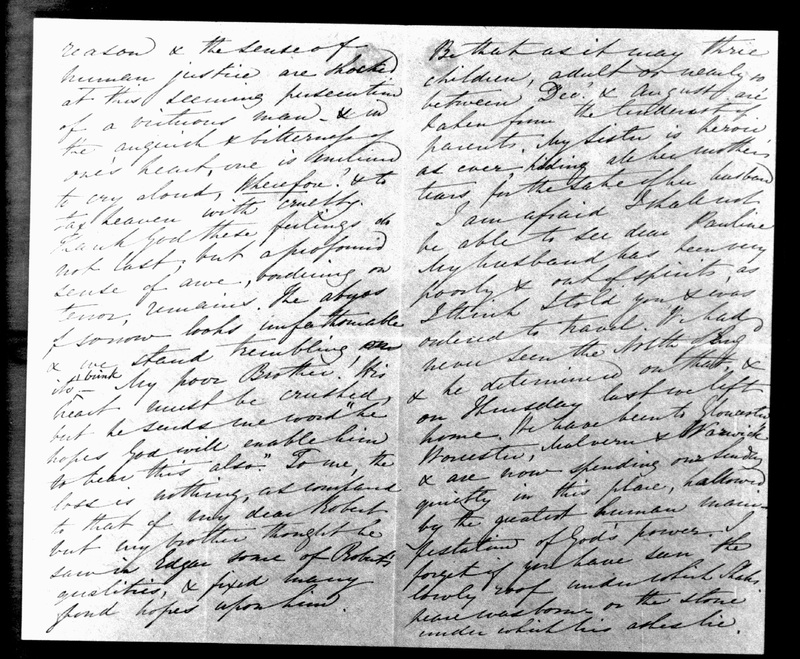 reason & the sense of
human justice are shocked
at this seeming persecution
of a virtuous man - & in
the anguish & bitterness of
one's heart, one is inclined
to cry aloud, Wherefore? & to
tax heaven with cruelty.
Thank God these feelings do
not last, but a profound
sense of awe, bordering on
terror, remains. The abyss
of sorrow looks unfathomable
& we stand trembling, on
its brink - My poor Brother, His
heart must be crushed,
but he sends me word "he
hopes God will enable him
to bear this also". To me, the
loss is nothing, as compared
to that of my dear Robert
but my brother thought he
saw in Edgar some of Robert's
qualities, & fixed many
fond hopes upon him.
Be that as it may three
children, adult or nearly so
between Decr. & August are
taken from the tenderest of
parents. My Sister is heroic
as ever hiding all her mother's
tears for the sake of her husband
I am afraid I shall not
be able to see dear Pauline
My husband has been very
poorly & out of spirits, as
I think I told you & was
ordered to travel. We had
never seen the North of Eng
& he determined on that, &
on Thursday last we left
home. We have been to Gloucester
Worcester, Malvern & Warwick
& are now spending our Sunday
quietly in this place, hallowed
by the greatest human mani-
festation of God's power. I
forget if you have seen the
lowly roof under which Shaks.
peare was borne or the stone
under which his ashes lie.